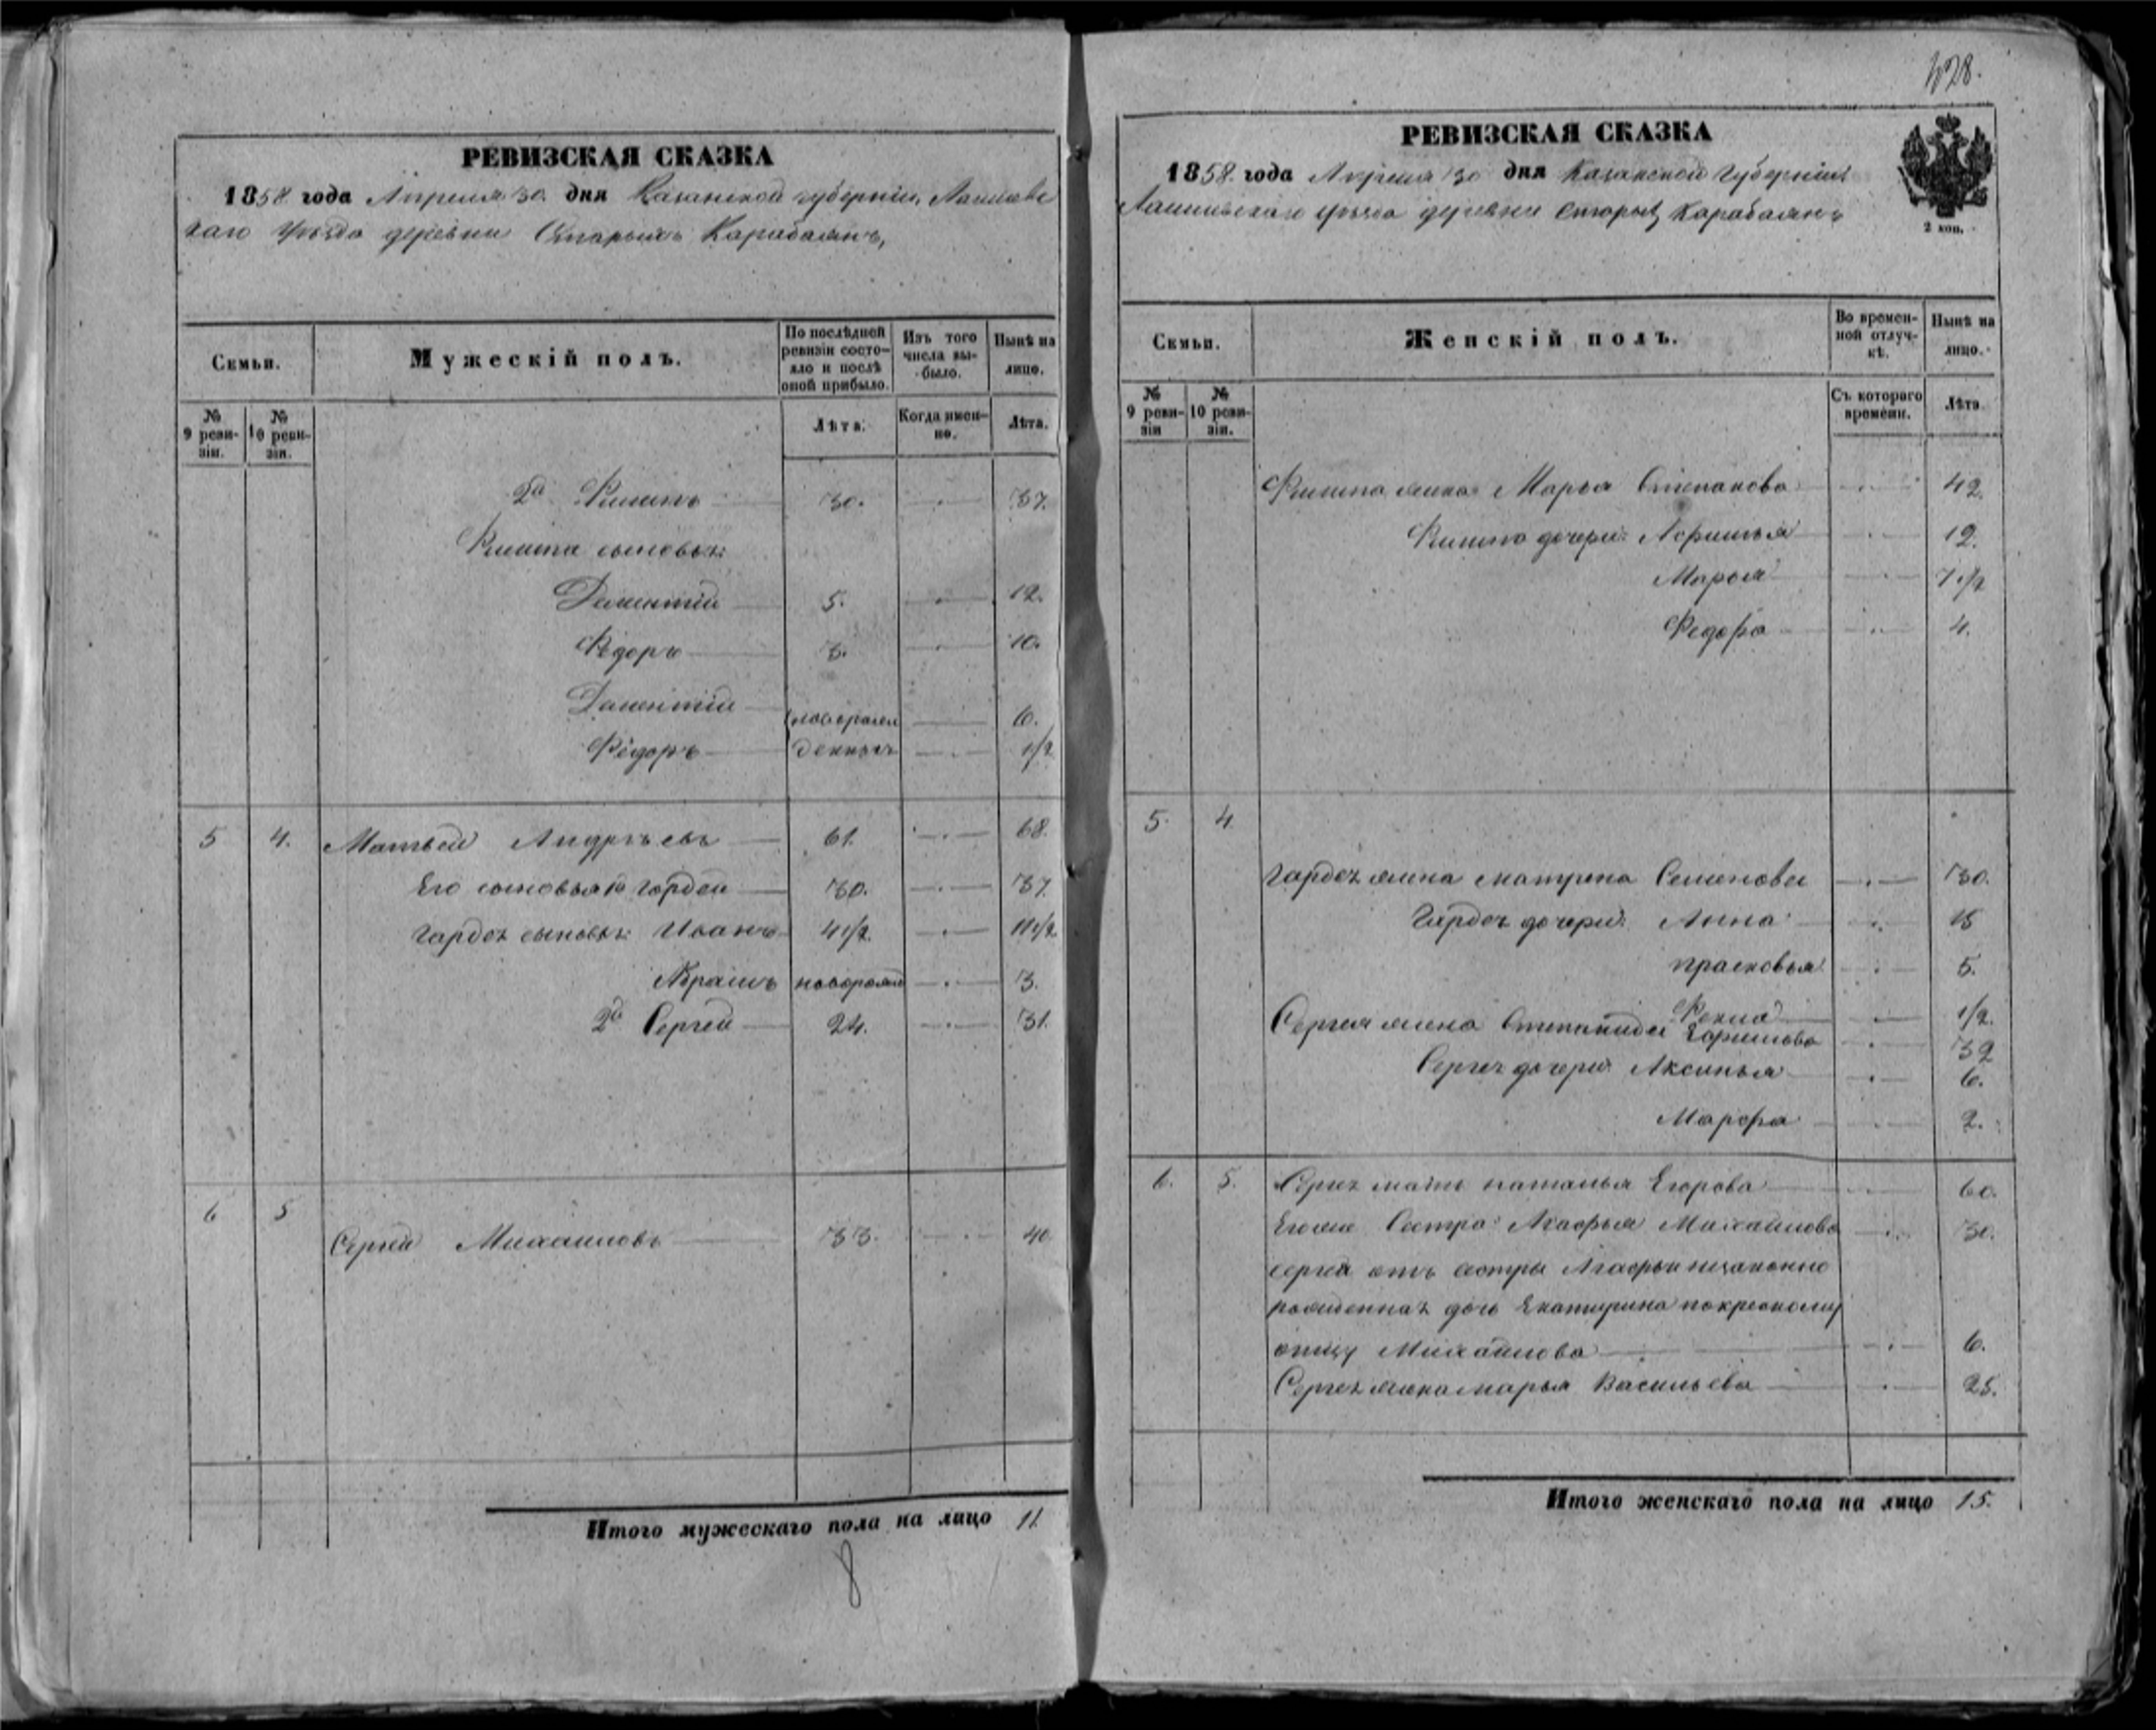 РЕВИЗСКАЯ СКАЗКА
1858 года Апреля 30. дня Казанской губерніи, Лаишевс
каго Уѣзда деревни Старыхъ Карабаянъ,
Семьи.
Мужескій полъ.
По послѣдней ревизіи состояло и послѣ оной прибыло.
Изъ того числа выбыло.
Нынѣ на лицо.
№ 9 ревизіи.
№ 10 ревизіи.
Лѣта.
Когда именно.
Лѣта.
2й Филипъ 30. 37.
Филипа сыновья:
Дементій 5. 12.
Федоръ 3. 10.
Дементій 6.
новорожденныя
Федоръ 1/2
5 4. Матвей Андреевъ 61. 68.
Его сыновья 1й Гордей 30. 37.
Гордея сыновья: Иванъ 4 1/2 11 1/2
новорожд 3.
2й Сергей 24. 31.
6 5 Сергей Михайловъ 33. 40
Итого мужескаго пола на лицо 11.
8
428.
РЕВИЗСКАЯ СКАЗКА
1858. года Апреля 30 дня Казанской Губерніи
Лаишевскаго уѣзда деревни Старыхъ Карабаянъ
2 коп.
Семьи.
Женскій полъ.
Во временной отлучкѣ.
Нынѣ на лицо.
№ 9 ревизіи
№ 10 ревизіи.
Съ котораго времени.
Лѣта.
Филипа жена Марья Степанова 42.
Филипа дочери: 12.
Марья 7 1/2
Федора 4.
5. 4.
Гордея жена Матрена Семенова 30.
Гордея дочери: Анна 15
Прасковья 5.
1/2.
Сергея жена Степанида Ефимова 32
Сергея дочери: Аксинья 6.
Марфа 2.
6. 5. Сергея мать Наталья Егорова 60.
Его же Сестра Агафья Михайлова 30.
Сергея отъ сестры Агафьи незаконно
рожденная дочь Екатерина по крестному
отцу Михайлова 6.
Сергея жена Марья Васильева 25.
Итого женскаго пола на лицо 15.